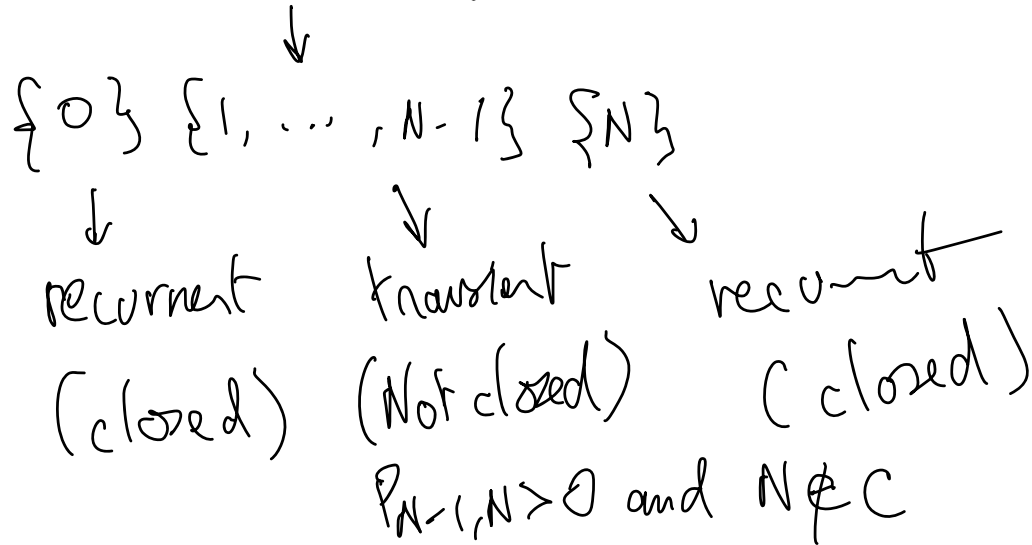 {0} {1, ..., N-1} {N}
recurrent transient recurrent
(closed) (Not closed) (closed)
P_{N-1,N} > 0 and N ∉ C